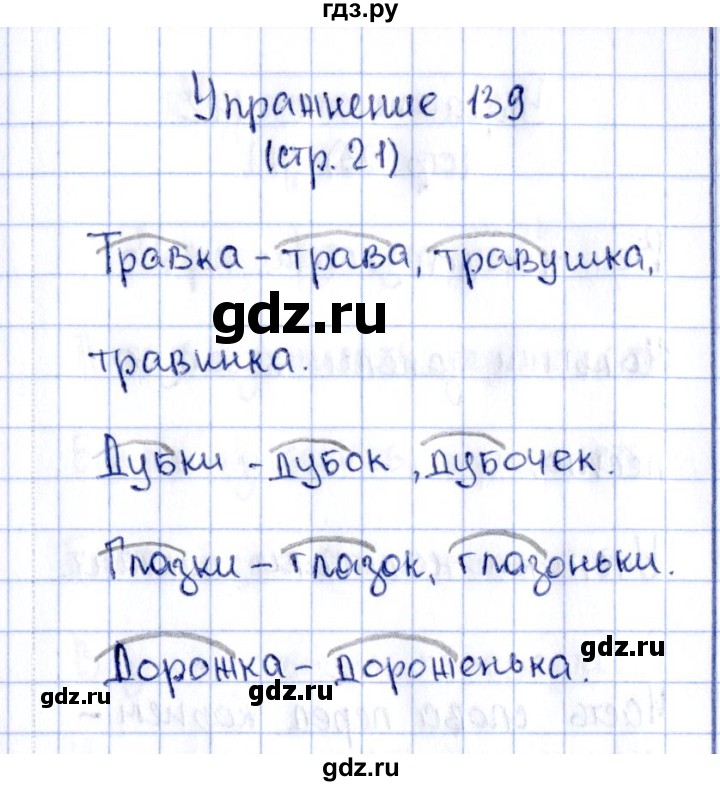 гдз.ру
Упражнение 139
(стр. 21)
Травка - трава, травушка,
gdz.ru
травинка.
Дубки - дубок, дубочек.
Глазки - глазок, глазоньки.
gdz.ru
Дорожка - дороженька.
gdz.ru
gdz.ru
gdz.ru